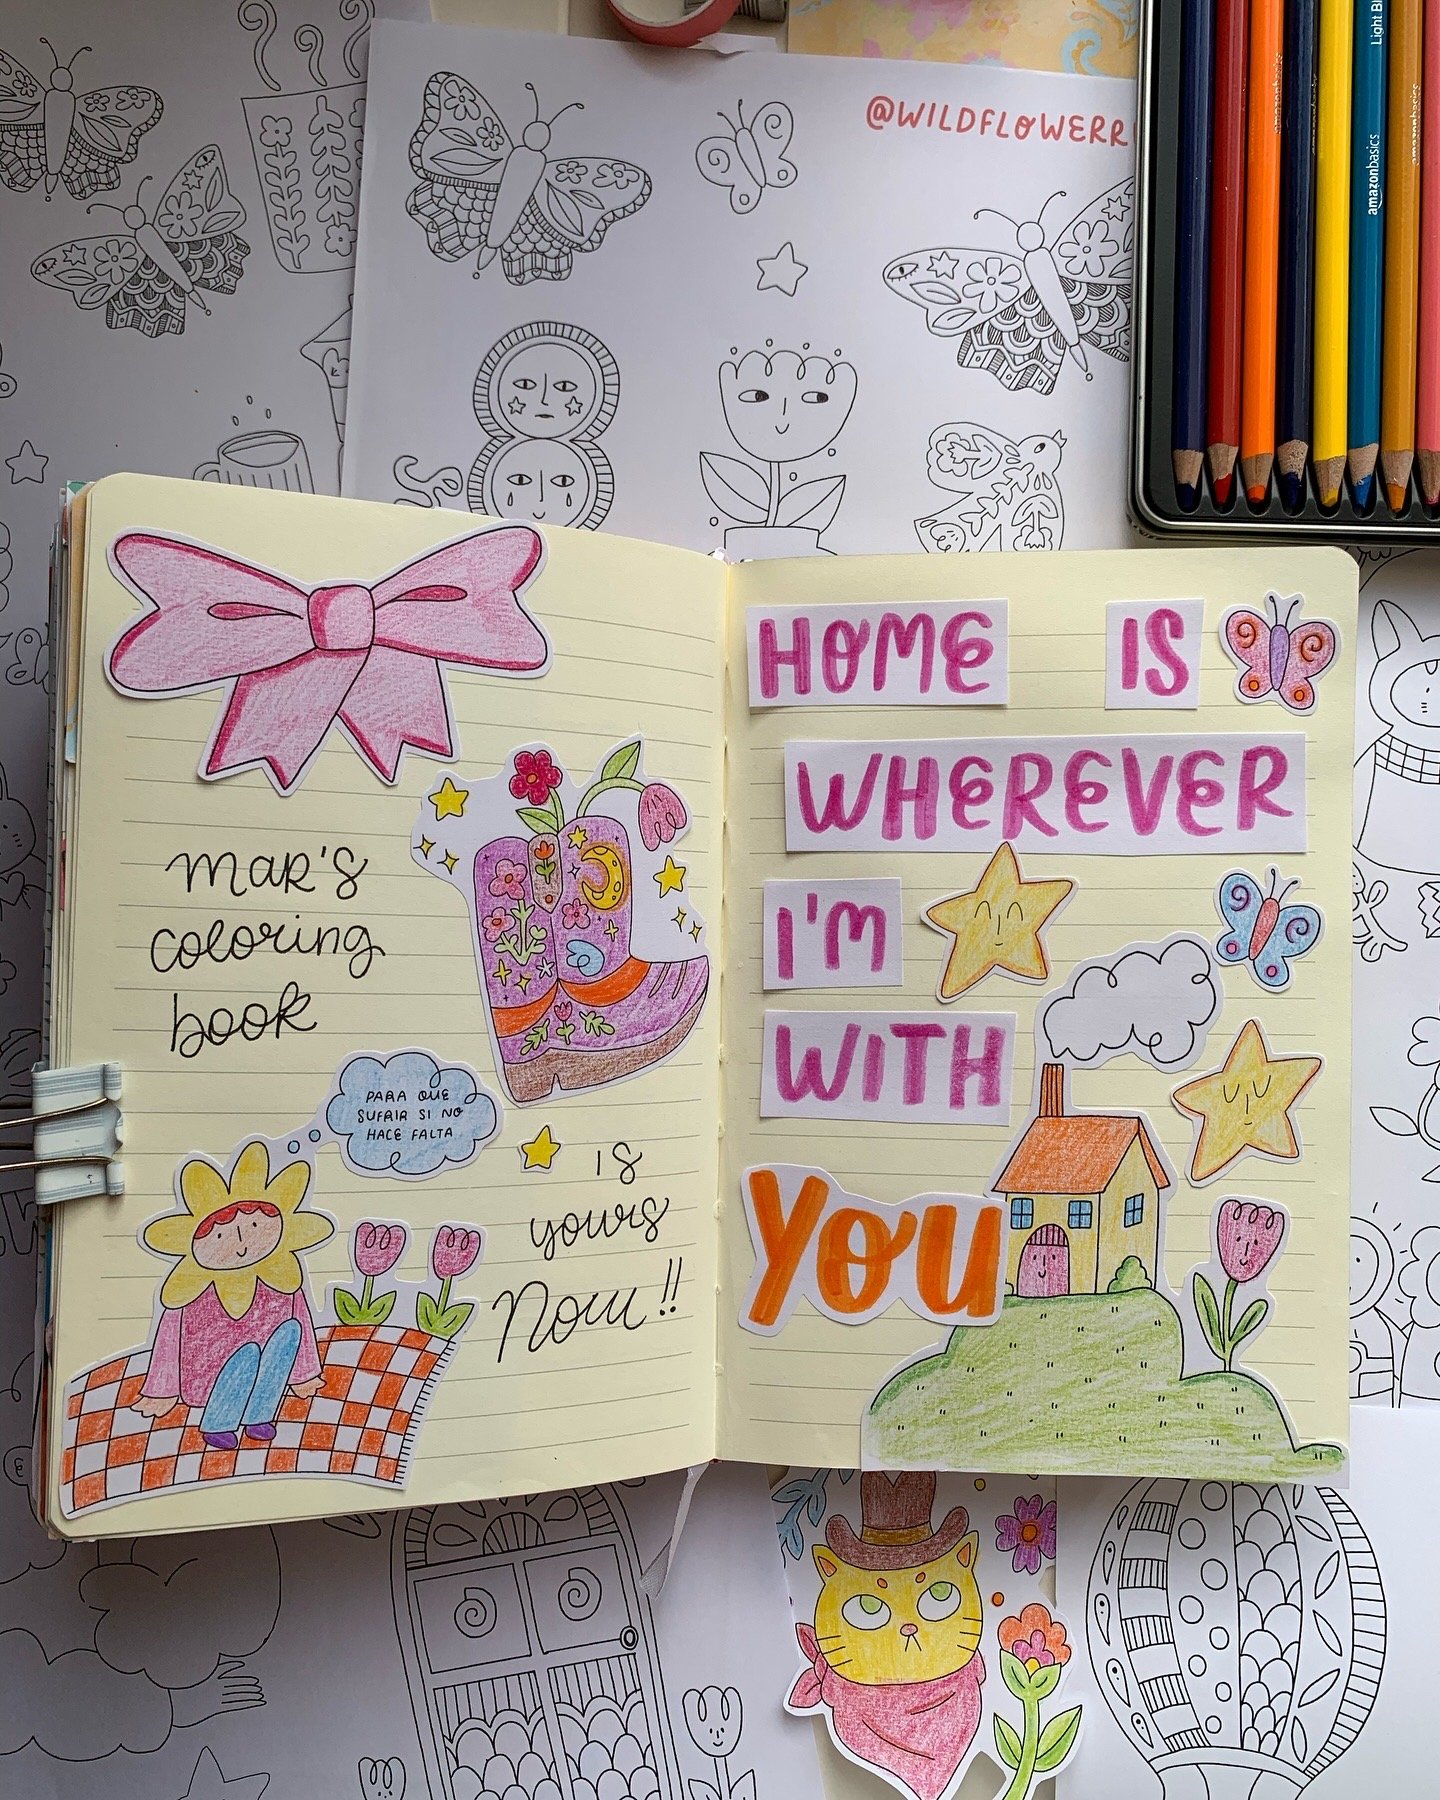 @WILDFLOWERR
Light Bl
amazonbasics
amazonbasics
amazonbasics
mar's
coloring
book
PARA QUE
SUFRIR SI NO
HACE FALTA
is
yours
Now!!
HOME IS
WHEREVER
I'M
WITH
YOU